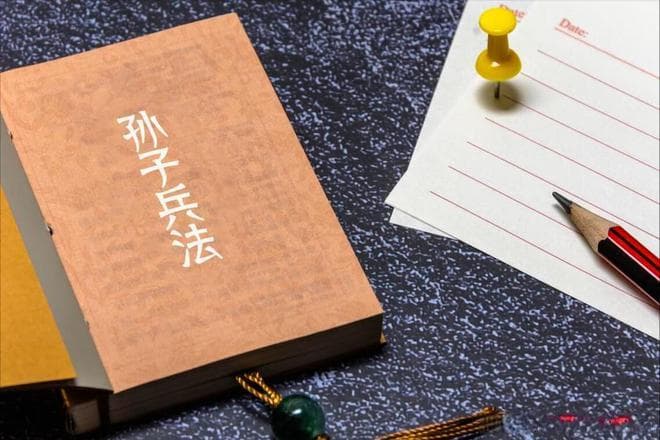 孙子兵法
Date: